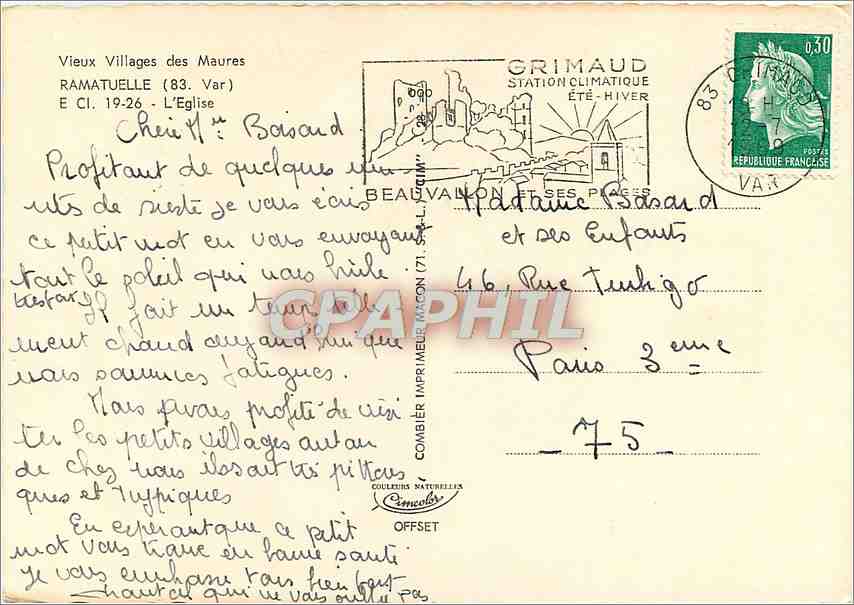 Vieux Villages des Maures
RAMATUELLE (83. Var)
E CI. 19-26 - L'Eglise
GRIMAUD
STATION CLIMATIQUE
ÉTÉ - HIVER
BEAUVALLON ET SES PLAGES
83 GRIMAUD
VAR
0,30
POSTES
REPUBLIQUE FRANÇAISE
Chère Mme Basard
Profitant de quelques min
utes de sieste je vous écris
ce petit mot en vous envoyant
tout le soleil qui nous brûle
très fort. Il fait un temps telle
ment chaud aujourd'hui que
nous sommes fatigués.
Nous avons profité de visi
ter les petits villages autour
de chez nous ils sont très pittores
ques et typiques
En espérant que ce petit
mot vous trouve en bonne santé
je vous embrasse tous bien fort
qui ne vous oublie pas
COMBIER IMPRIMEUR MACON (71. S.-&-L.) "CIM"
COULEURS NATURELLES
Cimcolor
OFFSET
Madame Basard
et ses Enfants
46, Rue Turbigo
Paris 3eme
- 75 -
CPAPHIL